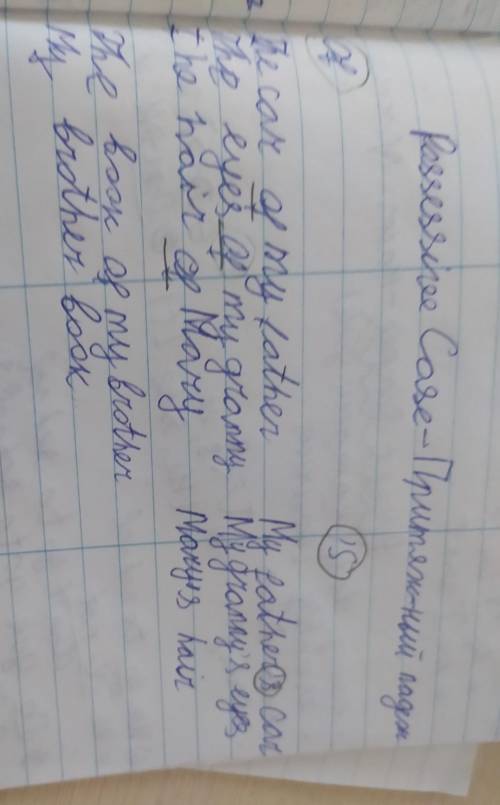 Possessive Case – Притяж-ний падеж
of 's
The car of my father My father's car
The eyes of my granny My granny's eyes
The hair of Mary Mary's hair
The book of my brother
My brother book